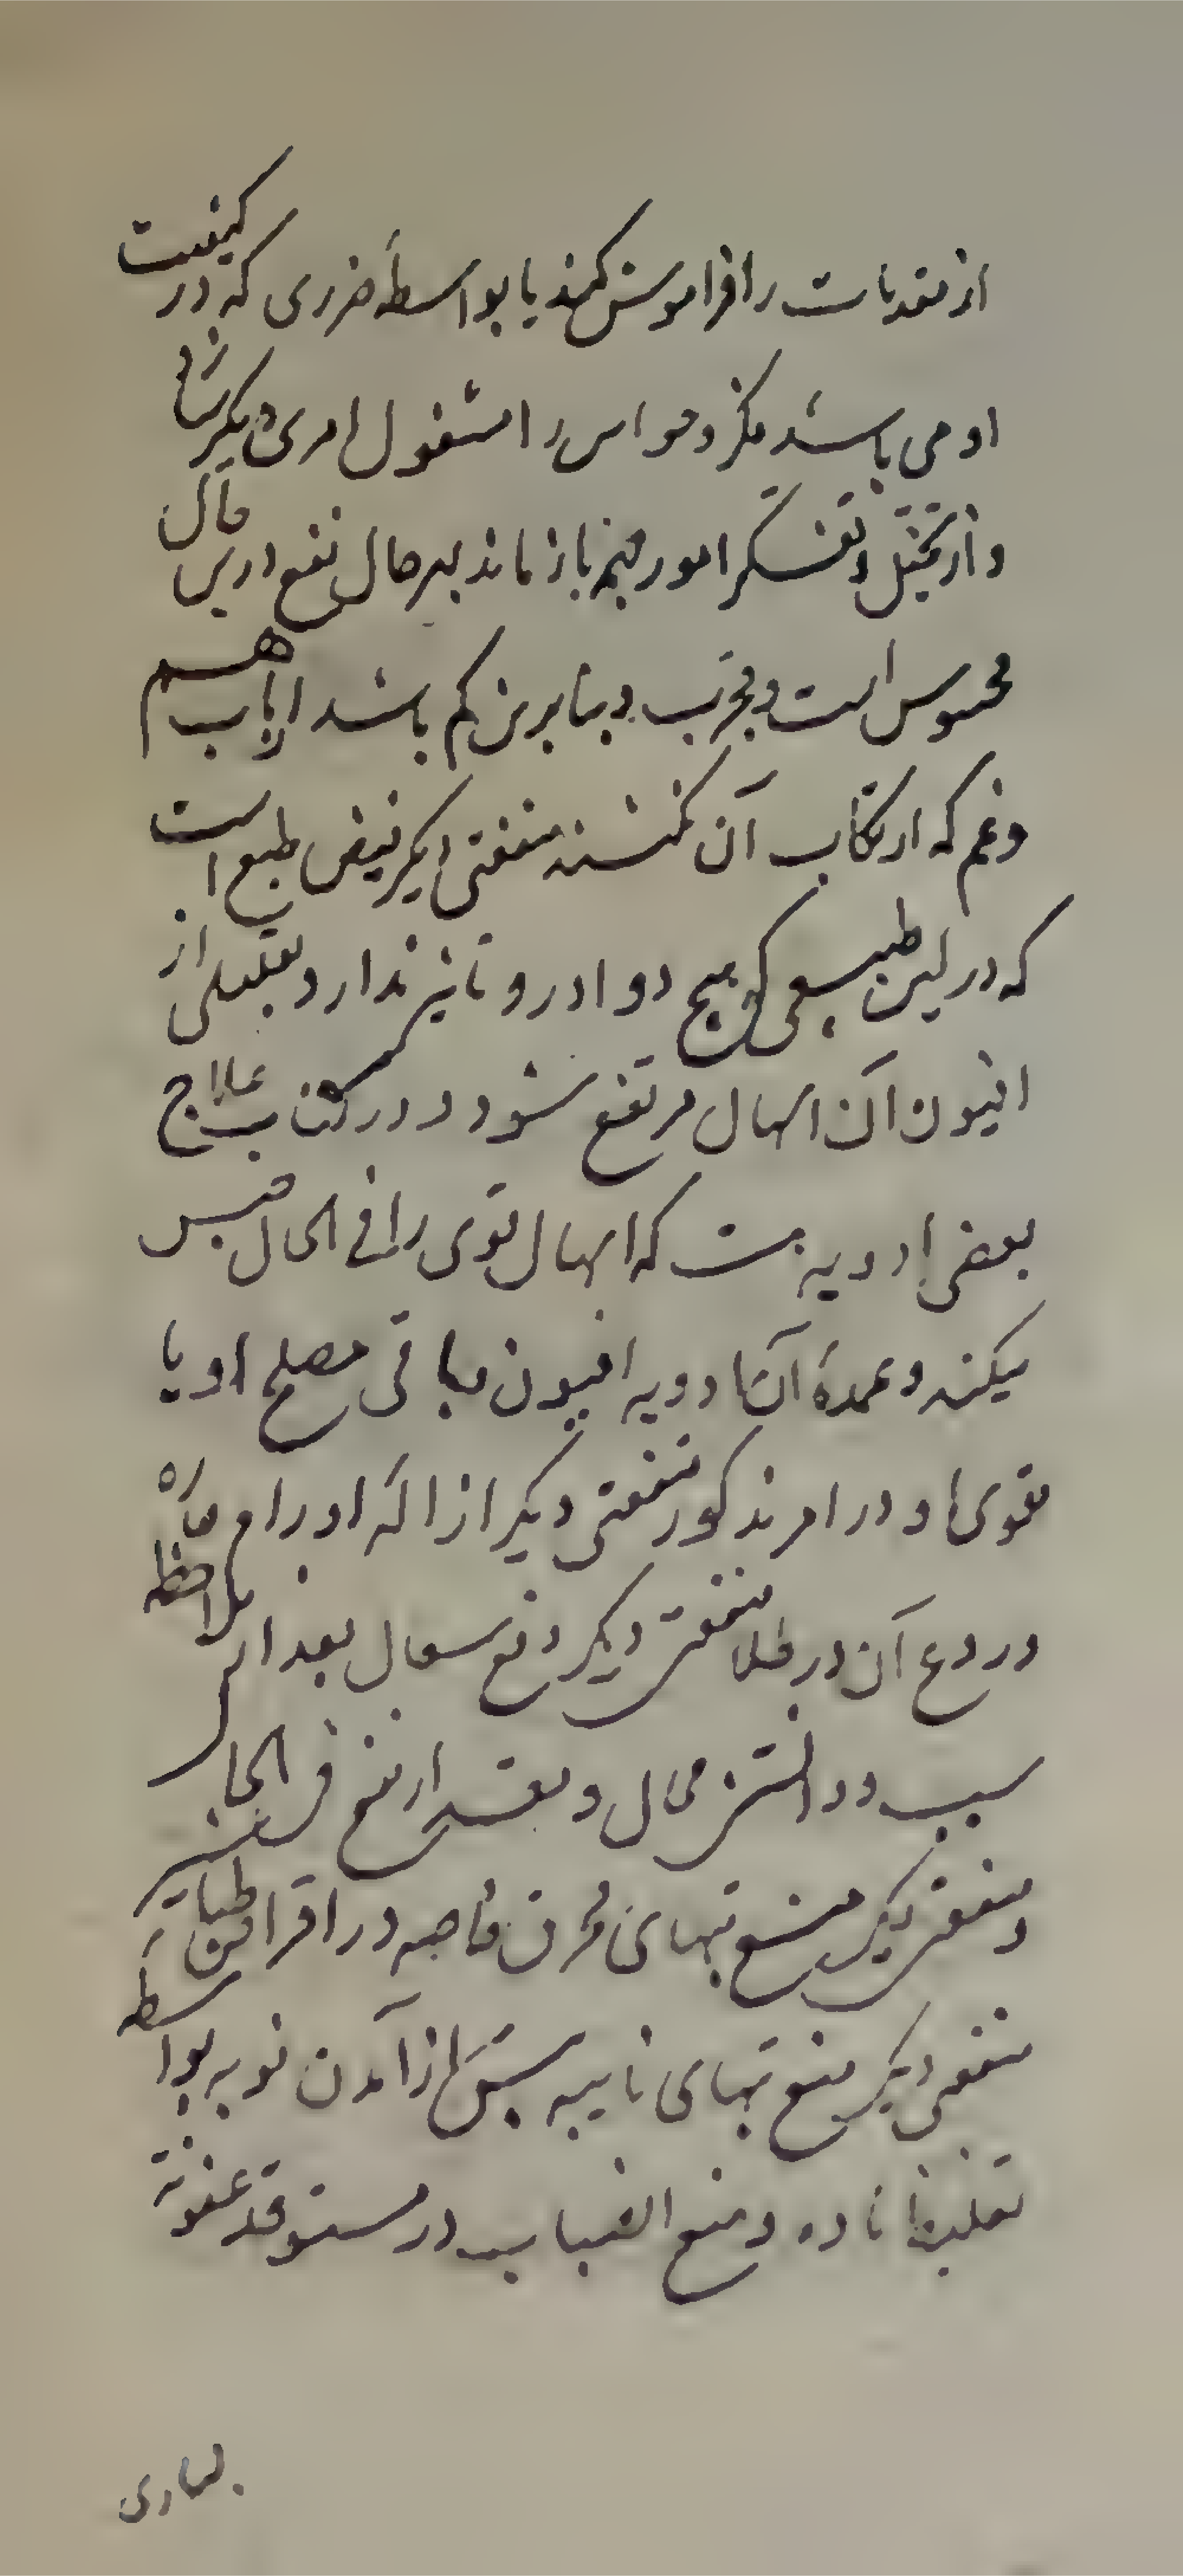 از مقدمات را فراموش کند یا بواسطهٔ ضرری که در کیفیت
او می باشد فکر و حواس را مشغول امری دیگر سازد
و از تخیل و تفکر امور مهمه باز ماند بهر حال نفع در این حال
محسوس است و مجرب و بنابرین کم باشد ارباب هم
و غم که ارتکاب آن نکنند منفعتی دیگر قبض طبع است
که در لین طبیعی که هیچ دوا درو تاثیر ندارد بقلیلی از
افیون آن اسهال مرتفع شود و در کتاب علاج
بعضی ادویه هست که اسهال قوی را فی الحال حبس
میکند و عمدهٔ آن ادویه افیون و باقی مصلح او یا
مقوی او در امر مذکور منفعتی دیگر ازاله اورام حاره
و ردع آن در طلا منفعتی دیگر دفع سعال بعد از ملاحظه
سبب و دانستن محال و مقدار نفع فی الجاشیر
و منفعتی دیگر منع تبهای محرق خاصه در اقراص طباشیر
منفعتی دیگر منع تبهای نایبه پیش از آمدن نوبه بواسطه
تغلیظ ماده و منع انصباب در مستوقد عفونة